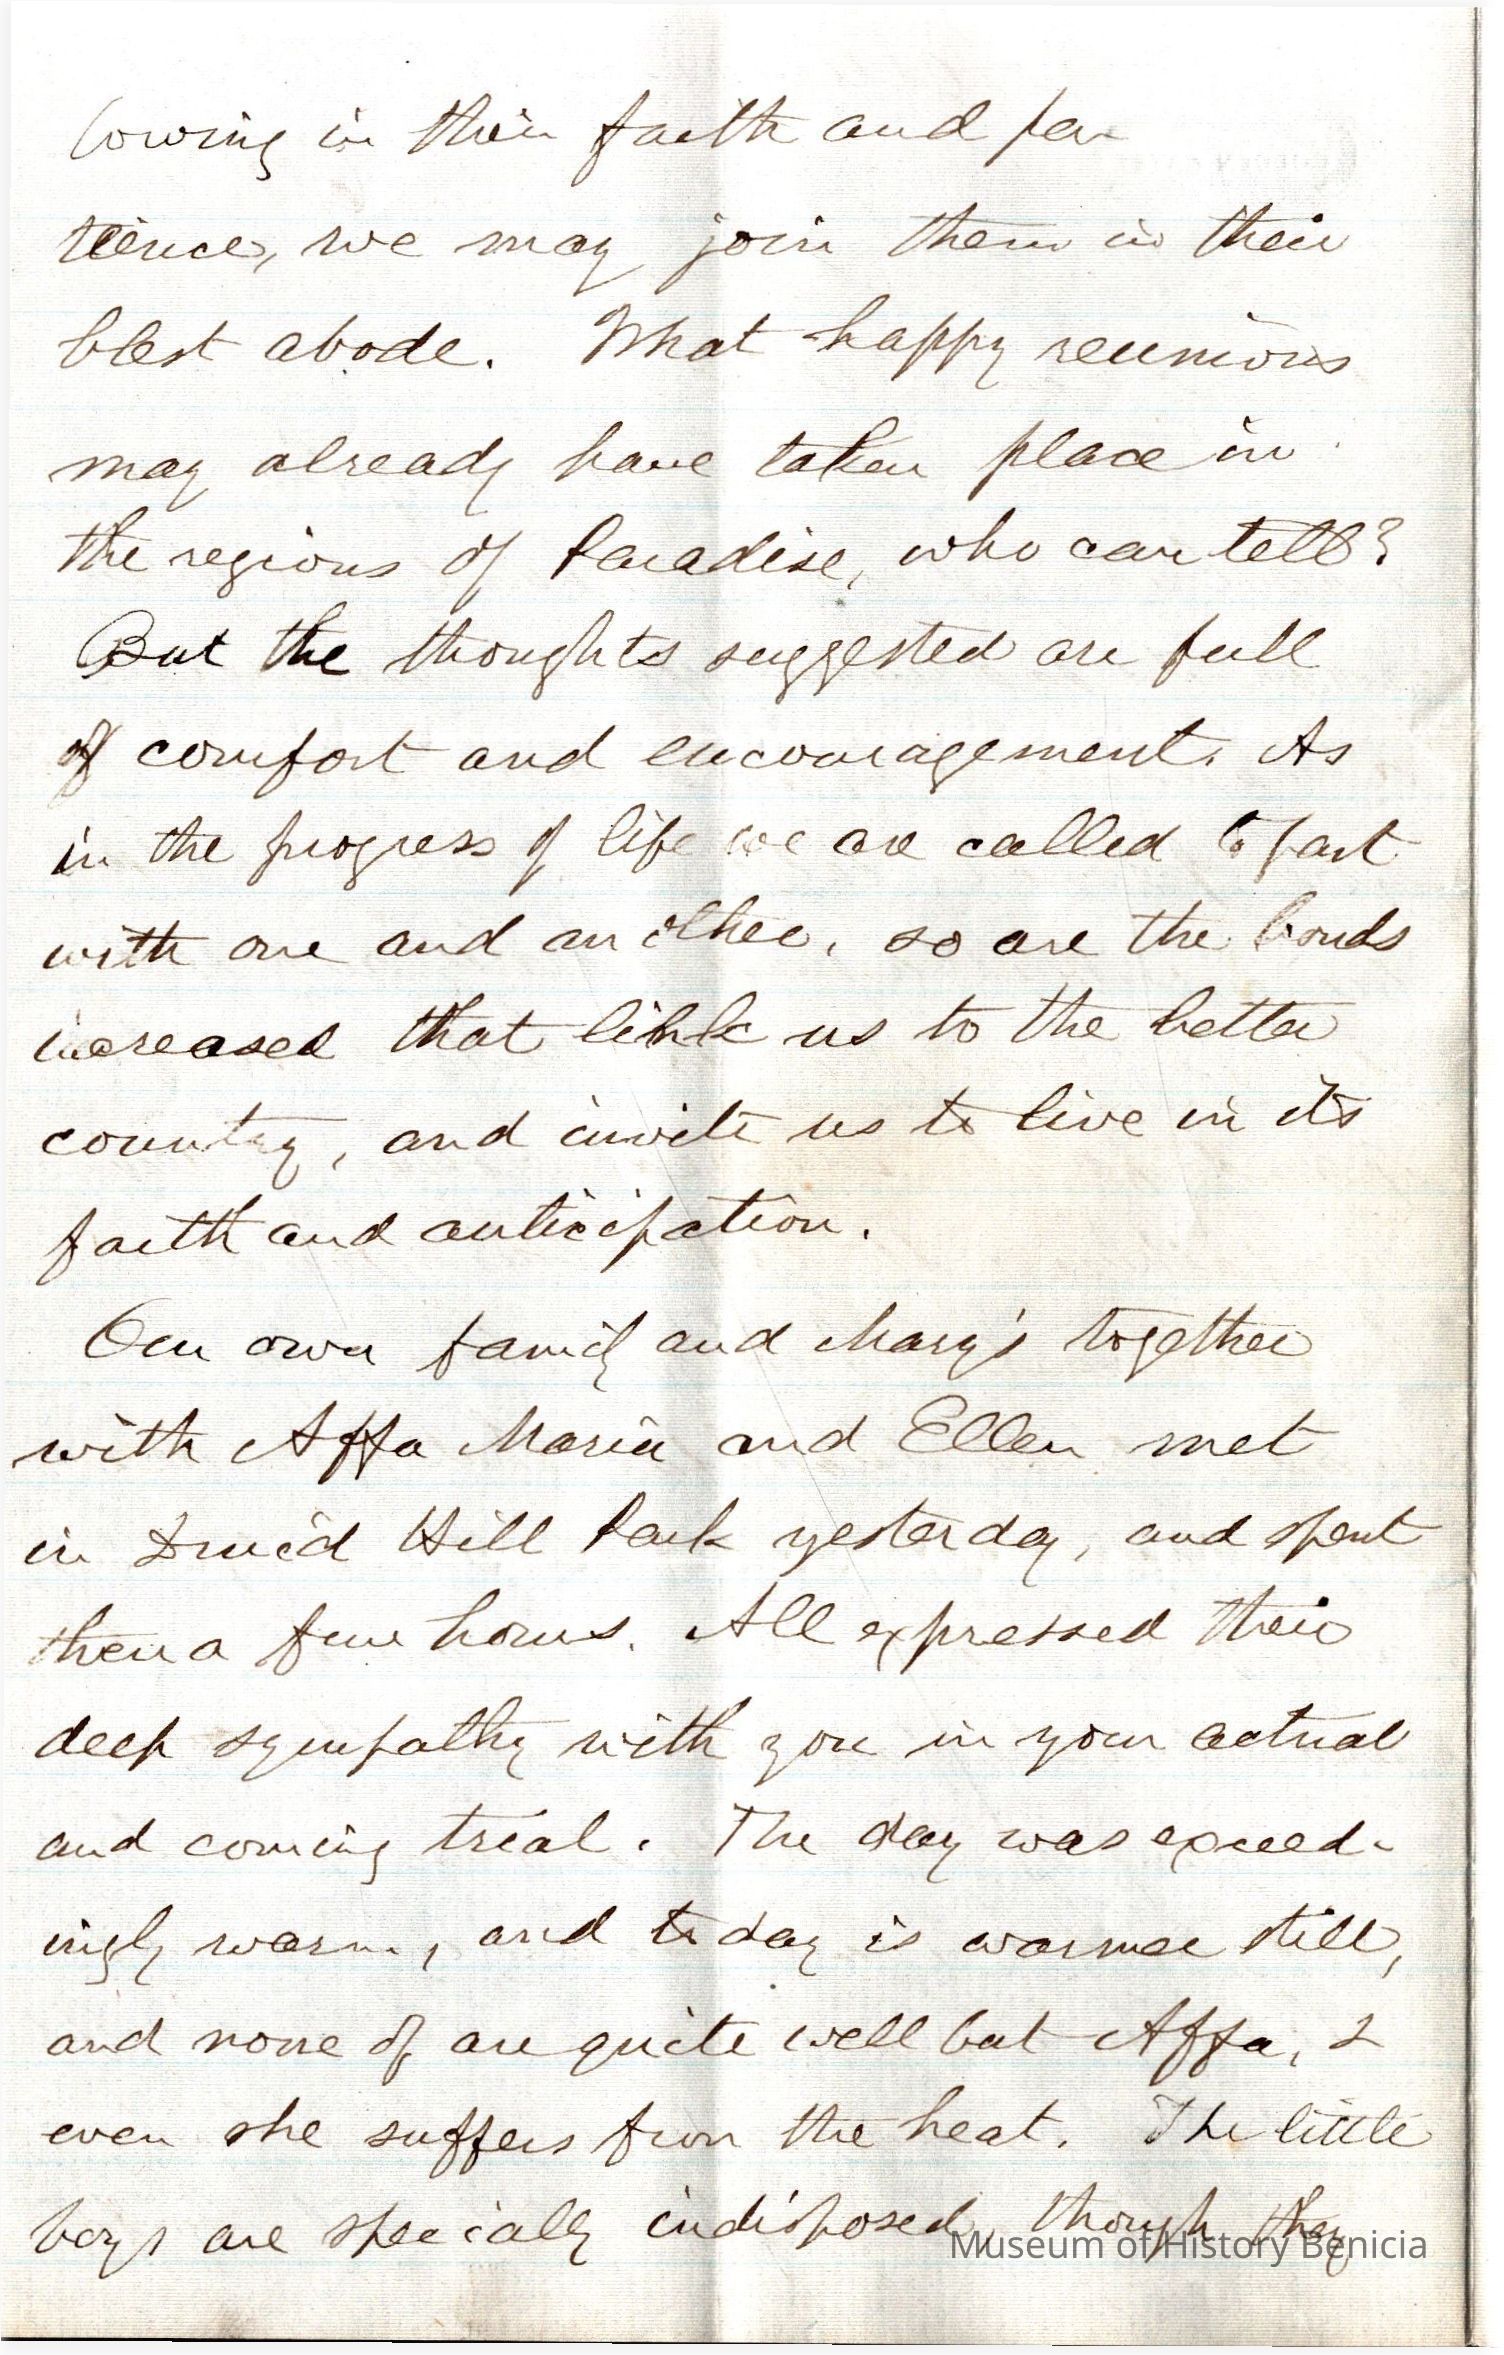 lowing in their faith and pa-
tience, we may join them in their
blest abode. What happy reunions
may already have taken place in
the regions of Paradise, who can tell?
But the thoughts suggested are full
of comfort and encouragement. As
in the progress of life we are called to part
with one and another, so are the bonds
increased that link us to the better
country, and invite us to live in its
faith and anticipation.
Our own family and Mary's together
with Affa Maria and Ellen met
in Druid Hill Park yesterday, and spent
there a few hours. All expressed their
deep sympathy with you in your actual
and coming trial. The day was exceed-
ingly warm, and to day is warmer still,
and none of are quite well but Affa, &
even she suffers from the heat. The little
boys are specially indisposed, though they
Museum of History Benicia